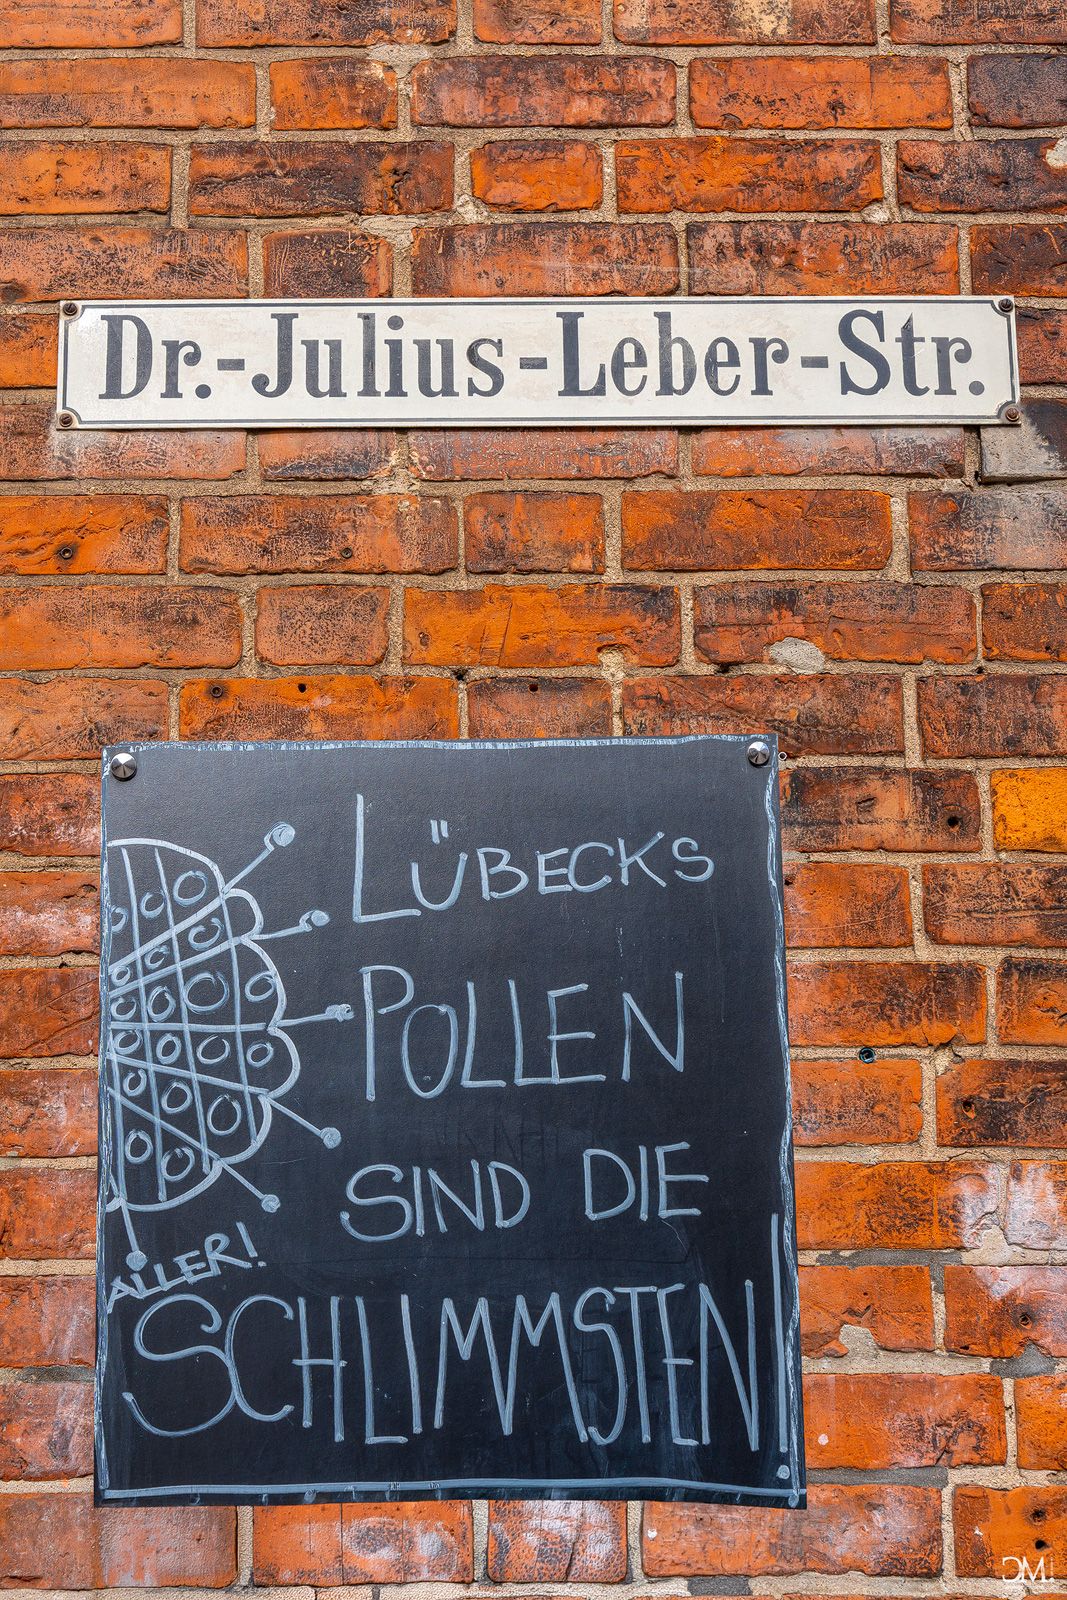 Dr.-Julius-Leber-Str.
LÜBECKS
POLLEN
SIND DIE
ALLER!
SCHLIMMSTEN!